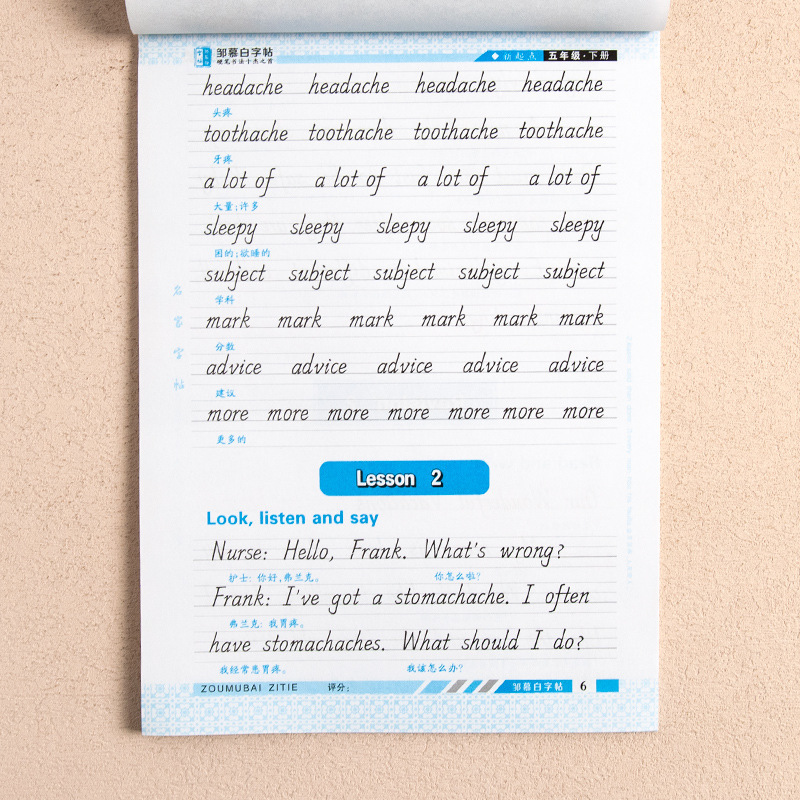 邹慕白字帖
硬笔书法十杰之首
新起点 五年级·下册
headache headache headache headache
头疼
toothache toothache toothache toothache
牙疼
a lot of a lot of a lot of a lot of
大量;许多
sleepy sleepy sleepy sleepy sleepy
困的;欲睡的
subject subject subject subject subject
学科
mark mark mark mark mark mark
分数
advice advice advice advice advice
建议
more more more more more more more
更多的
名家字帖
Lesson 2
Look, listen and say
Nurse: Hello, Frank. What's wrong?
护士: 你好,弗兰克。 你怎么啦?
Frank: I've got a stomachache. I often
弗兰克: 我胃疼。
have stomachaches. What should I do?
我经常患胃疼。 我该怎么办?
ZOUMUBAI ZITIE 评分: 邹慕白字帖 6